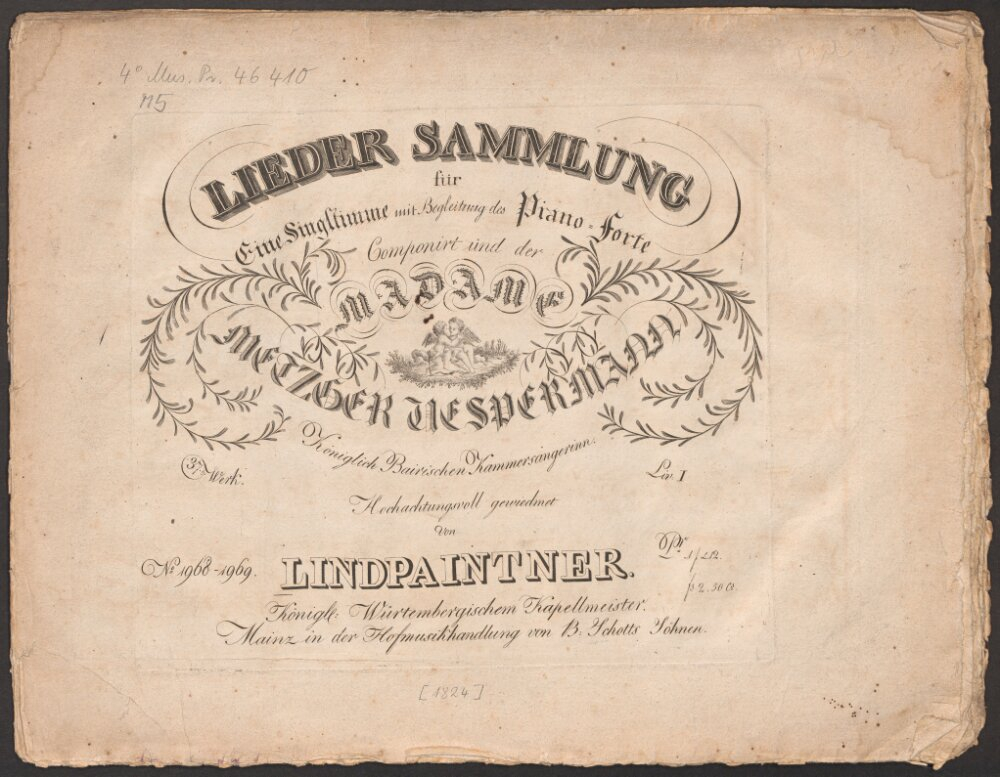 4° Mus. Pr. 46 410
LIEDER SAMMLUNG
für
Eine Singstimme mit Begleitung des Piano-Forte
Componirt und der
MADAME
METZGER VESPERMANN
Königlich Bairischen Kammersängerinn.
37tes Werk.
Liv. I
Hochachtungsvoll gewiedmet
von
LINDPAINTNER.
No. 1968-1969.
Pr.
Königle: Würtembergischem Kapellmeister.
Mainz in der Hofmusikhandlung von B: Schotts Söhnen.
[1824]